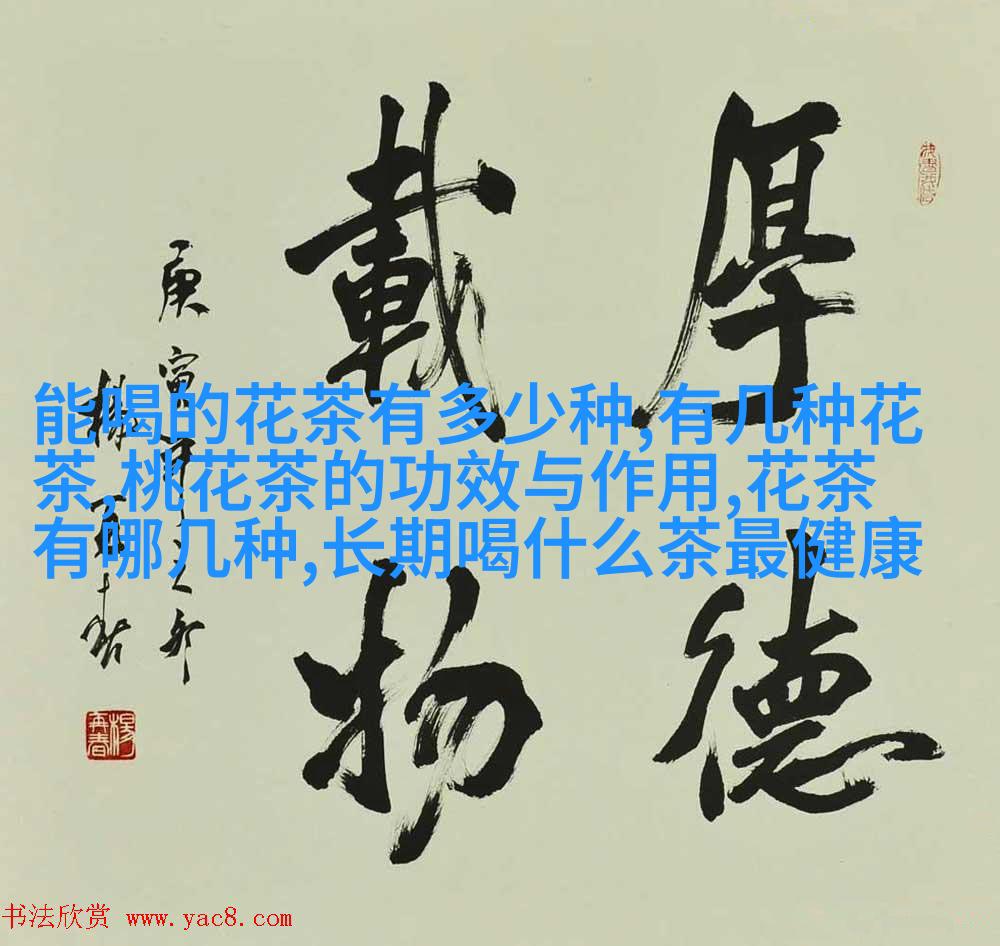 厚德
載物
庚寅
楊再春
楊再春
能喝的花茶有多少种,有几种花
茶,桃花茶的功效与作用,花茶
有哪几种,长期喝什么茶最健康
书法欣赏 www.yac8.com